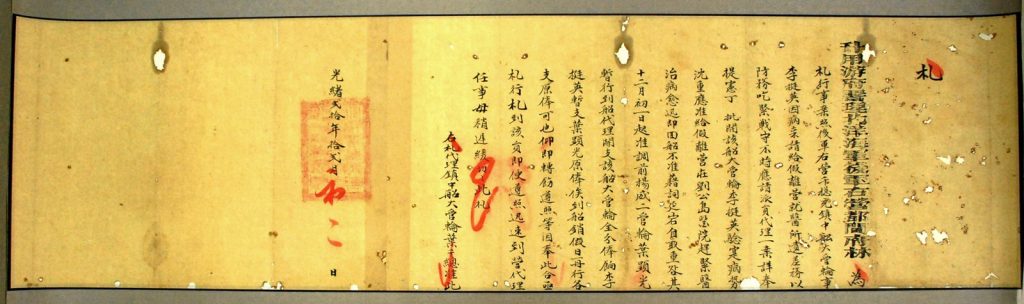 札
為
札行事案照後軍右營千總充鎮中船大管輪事
李挺英因病稟請給假離營就醫所遺差務以
防務吃緊戰守不時應請派員代理一案詳奉
提憲丁 批開該船大管輪李挺英驗寔病勢
沈重應准給假離營在劉公島醫院趕緊醫
治病愈迅即回船不准藉詞延宕自取重咎其
十二月初一日起准調前揚威二管輪葉顯光
暫行到船代理開支該船大管輪全分俸餉李
挺英暫支葉顯光原俸俟到船銷假日毋行各
支原俸可也仰即轉飭遵照等因奉此合亟
札行札到該員即便遵照迅速到營代理
任事毋稍遲緩切切此札
右札代理鎮中船大管輪葉千總准此
光緒貳拾年拾貳月 日